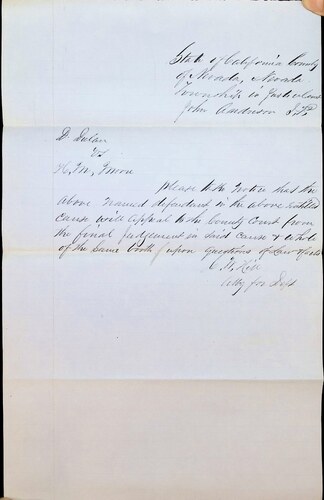 State of California County
of Nevada, Nevada
Township in Justice Court
John Anderson J.P.
D. Dulan
vs
H. M.
please take Notice that the
above named defendent in the above entitled
cause will appeal to the County Court from
the final judgement in said cause & whole
of the same both upon questions of Law & facts
C. W. Hill
Atty for Deft